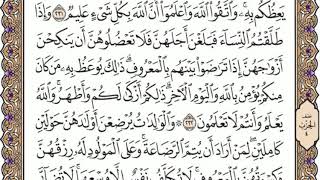 يَعِظُكُم بِهِۦ وَٱتَّقُوا۟ ٱللَّهَ وَٱعْلَمُوٓا۟ أَنَّ ٱللَّهَ بِكُلِّ شَىْءٍ عَلِيمٌ ۝٢٣١ وَإِذَا
طَلَّقْتُمُ ٱلنِّسَآءَ فَبَلَغْنَ أَجَلَهُنَّ فَلَا تَعْضُلُوهُنَّ أَن يَنكِحْنَ
أَزْوَٰجَهُنَّ إِذَا تَرَٰضَوْا۟ بَيْنَهُم بِٱلْمَعْرُوفِ ذَٰلِكَ يُوعَظُ بِهِۦ مَن كَانَ
مِنكُمْ يُؤْمِنُ بِٱللَّهِ وَٱلْيَوْمِ ٱلْءَاخِرِ ذَٰلِكُمْ أَزْكَىٰ لَكُمْ وَأَطْهَرُ وَٱللَّهُ
يَعْلَمُ وَأَنتُمْ لَا تَعْلَمُونَ ۝٢٣٢ وَٱلْوَٰلِدَٰتُ يُرْضِعْنَ أَوْلَٰدَهُنَّ حَوْلَيْنِ
كَامِلَيْنِ لِمَنْ أَرَادَ أَن يُتِمَّ ٱلرَّضَاعَةَ وَعَلَى ٱلْمَوْلُودِ لَهُۥ رِزْقُهُنَّ